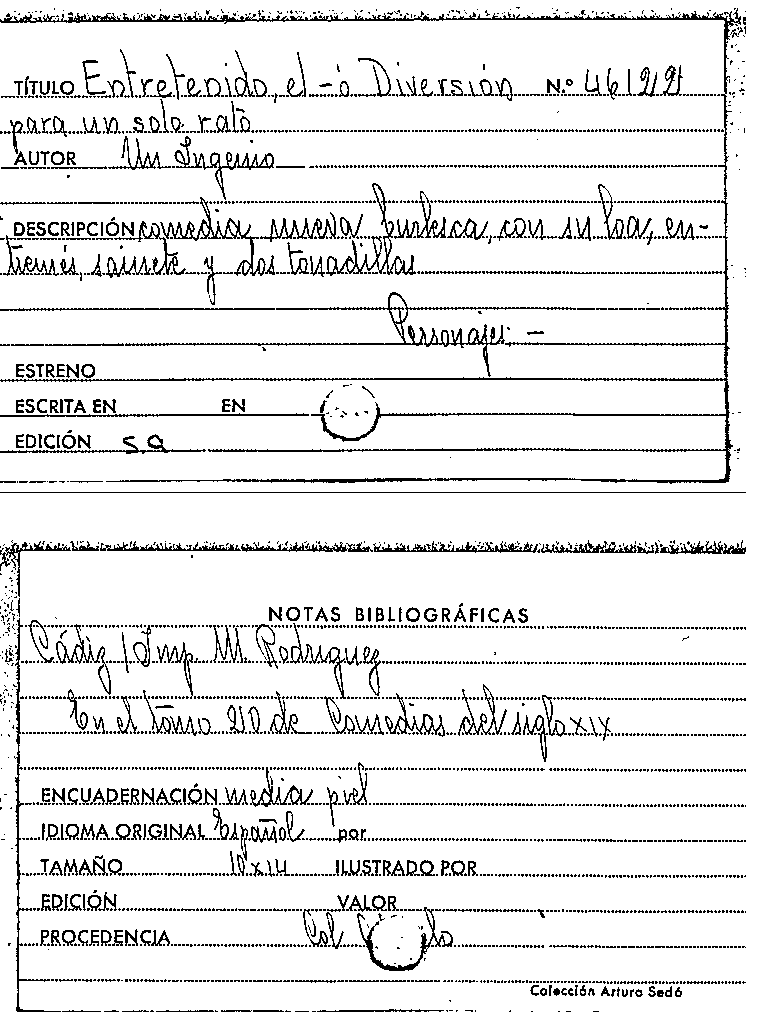 TÍTULO Entretenido, el - ó Diversión N.º 46122
para un solo rato
AUTOR Un Ingenio
DESCRIPCIÓN comedia nueva burlesca, con su loa, en-
tremés, sainete y dos tonadillas
Personajes: -
ESTRENO
ESCRITA EN EN
EDICIÓN s.a
NOTAS BIBLIOGRÁFICAS
Cádiz / Imp M. Rodriguez
En el tomo 210 de Comedias del siglo XIX
ENCUADERNACIÓN media piel
IDIOMA ORIGINAL Español por
TAMAÑO 10x14 ILUSTRADO POR
EDICIÓN VALOR
PROCEDENCIA Col
Colección Arturo Sedó